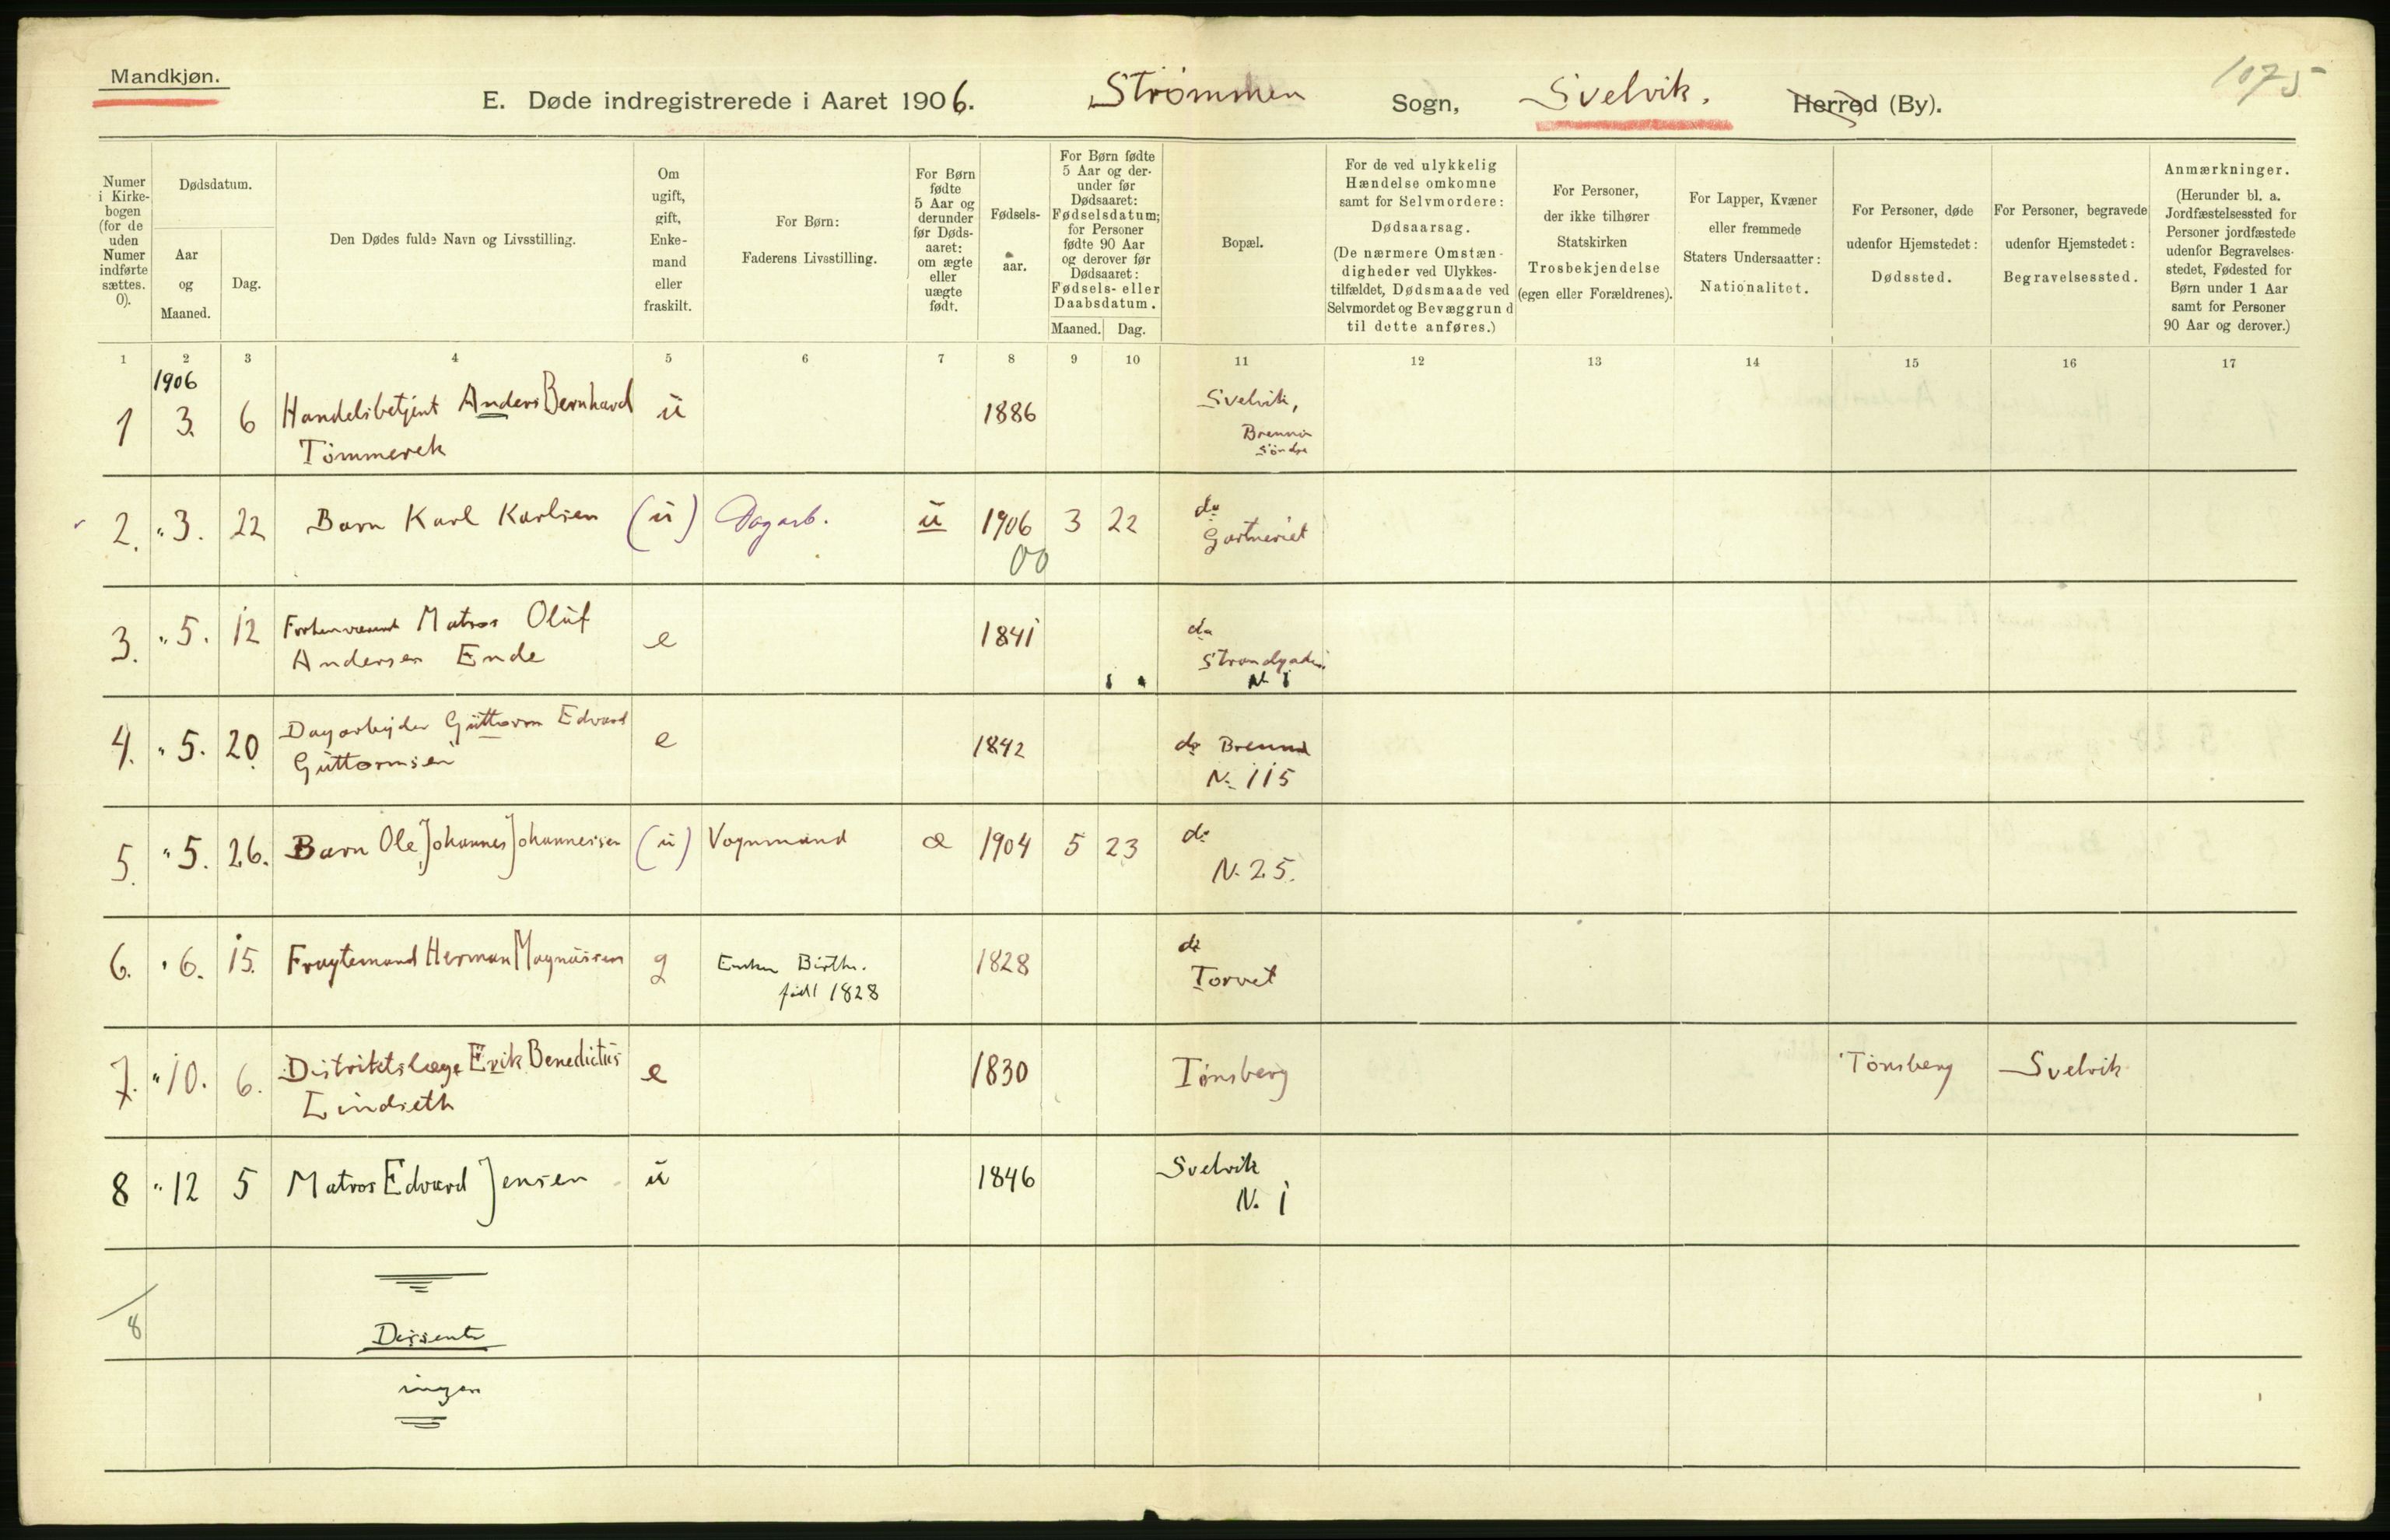 Mandkjøn.
E. Døde indregistrerede i Aaret 1906. Strømmen Sogn, Svelvik. Herred (By).
1075
Numer i Kirke-bogen (for de uden Numer indførte sættes. 0).
Dødsdatum.
Aar og Maaned.
Dag.
Den Dødes fulde Navn og Livsstilling.
Om ugift, gift, Enke-mand eller fraskilt.
For Børn: Faderens Livsstilling.
For Børn fødte 5 Aar og derunder før Døds-aaret: om ægte eller uægte født.
Fødsels-aar.
For Børn fødte 5 Aar og der-under før Dødsaaret: Fødselsdatum; for Personer fødte 90 Aar og derover før Dødsaaret: Fødsels- eller Daabsdatum.
Maaned. Dag.
Bopæl.
For de ved ulykkelig Hændelse omkomne samt for Selvmordere: Dødsaarsag. (De nærmere Omstæn-digheder ved Ulykkes-tilfældet, Dødsmaade ved Selvmordet og Bevæggrund til dette anføres.)
For Personer, der ikke tilhører Statskirken Trosbekjendelse (egen eller Forældrenes).
For Lapper, Kvæner eller fremmede Staters Undersaatter: Nationalitet.
For Personer, døde udenfor Hjemstedet: Dødssted.
For Personer, begravede udenfor Hjemstedet: Begravelsessted.
Anmærkninger. (Herunder bl. a. Jordfæstelsessted for Personer jordfæstede udenfor Begravelses-stedet, Fødested for Børn under 1 Aar samt for Personer 90 Aar og derover.)
1 2 3 4 5 6 7 8 9 10 11 12 13 14 15 16 17
1906
1 3. 6 Handelsbetjent Anders Bernhard ü 1886 Svelvik,
Tömmerek Brenna
Söndre
2. " 3. 22 Barn Karl Karlsen (ü) Dagarb. ü 1906 3 22 do
00 Gartneriet
3. " 5. 12 Forhenværend Matros Olüf e 1841 do
Andersen Ende Strandgaden
N. 1
4. " 5. 20. Dagarbejder Güttorm Edvard e 1842 do Brenna
Güttormsen N. 115
5. " 5. 26. Barn Ole Johannes Johannessen (ü) Vognmand æ 1904 5 23 do
N. 25.
6. " 6. 15. Fragtemand Herman Magnüssen g Enken Birthe. 1828 do
født 1828 Torvet
7. " 10. 6. Distriktslæge Erik Benedictüs e 1830 Tönsberg Tönsberg Svelvik
Lindseth
8 " 12 5 Matros Edvard Jensen ü 1846 Svelvik
N. 1
8
Dissente
ingen